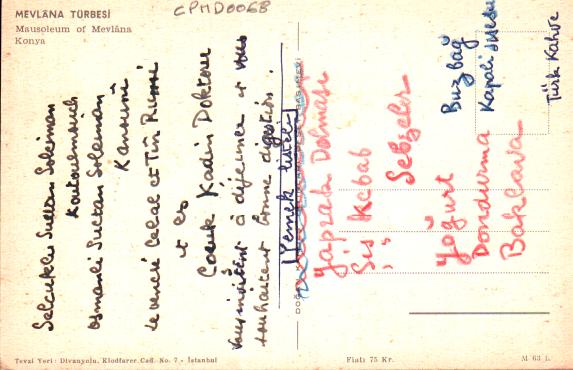 MEVLÂNA TÜRBESİ
Mausoleum of Mevlâna
Konya
CPMD0068
Selcuklu Sultan Soleiman
Koutoulmouch
Osmanli Sultan Soleiman
Kanuni
le vénéré Celal et Tin Rumi
et les
Cocuk Kadin Doktoru
vous invitent à déjeuner et vous
souhaitent bonne digestion.
Yemek listesi
Yaprak Dolmasi
Sis Kebab
Sebzeler
Yoğurt
Dondurma
Baklava
Buzbağ
Kapali
Türk Kahve
Tevzi Yeri: Divanyolu, Klodfarer Cad. No. 7 - İstanbul
Fiatı 75 Kr.
M 63 L